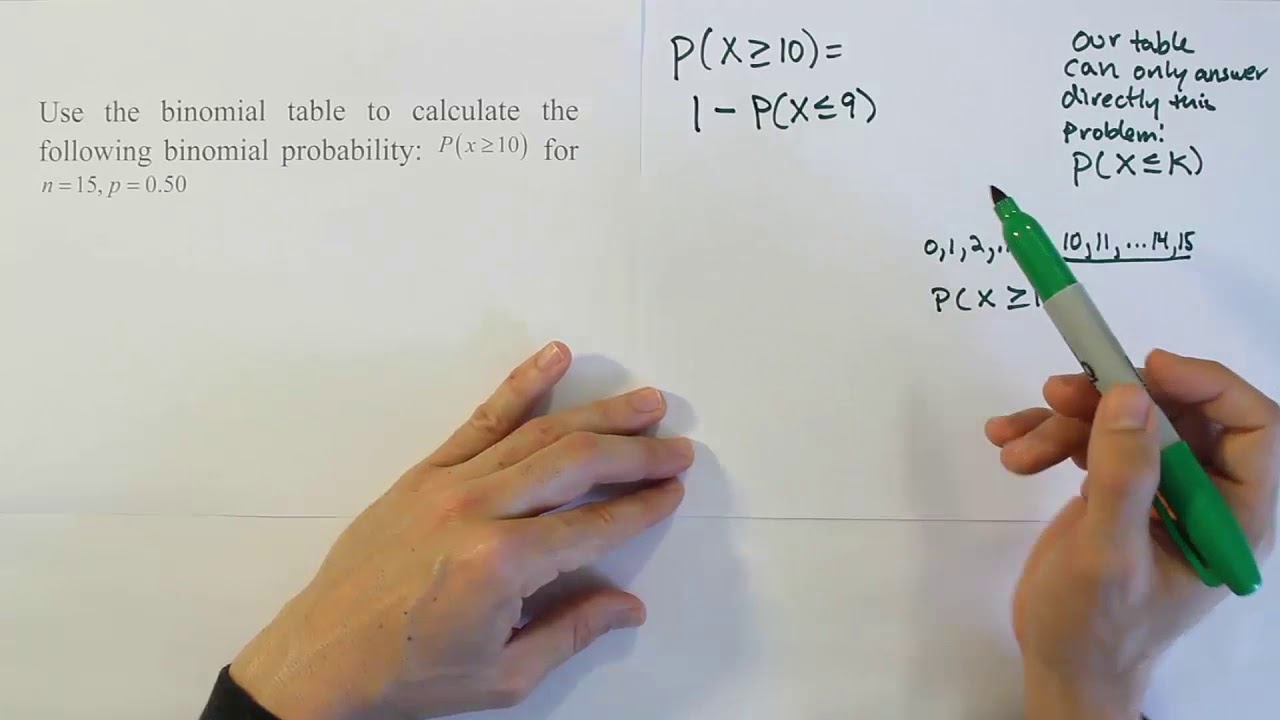 Use the binomial table to calculate the
following binomial probability: P(x≥10) for
n=15, p=0.50
P(X≥10)=
1-P(X≤9)
our table
can only answer
directly this
problem:
P(X≤K)
0,1,2,.. 10,11,...14,15
P(X≥1